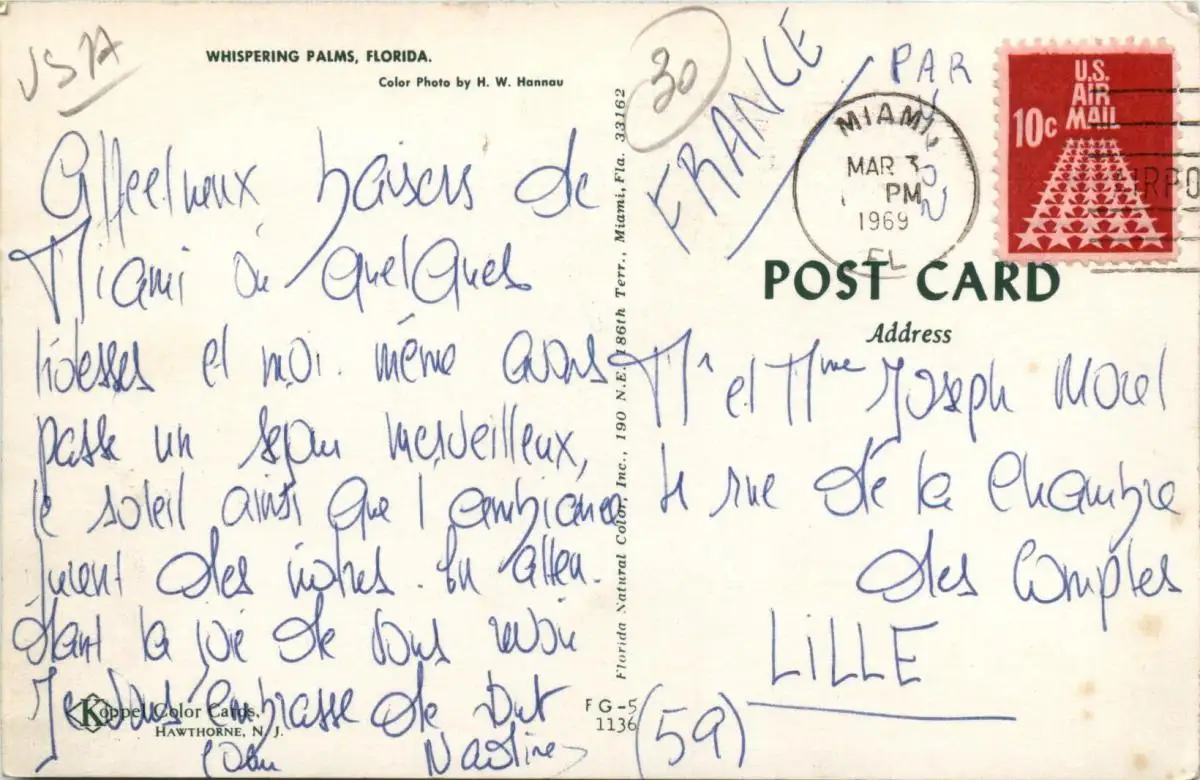 USA
WHISPERING PALMS, FLORIDA.
Color Photo by H. W. Hannau
Affectueux baisers de
Miami où quelques
hôtesses et moi. même avons
passé un séjour merveilleux,
le soleil ainsi que l'ambiance
furent des notres. En atten.
dant la joie de vous revoir
Je vous embrasse de tout
coeur
Koppel Color Cards,
HAWTHORNE, N. J.
FG-5
1136
Florida Natural Color, Inc., 190 N.E. 186th Terr., Miami, Fla. 33162
30
FRANCE
PAR
MIAMI,
MAR 3
PM
1969
FL
U.S.
AIR
MAIL
10c
POST CARD
Address
Mr et Mme Joseph Morel
rue de la Chambre
des Comptes
LILLE
(59)